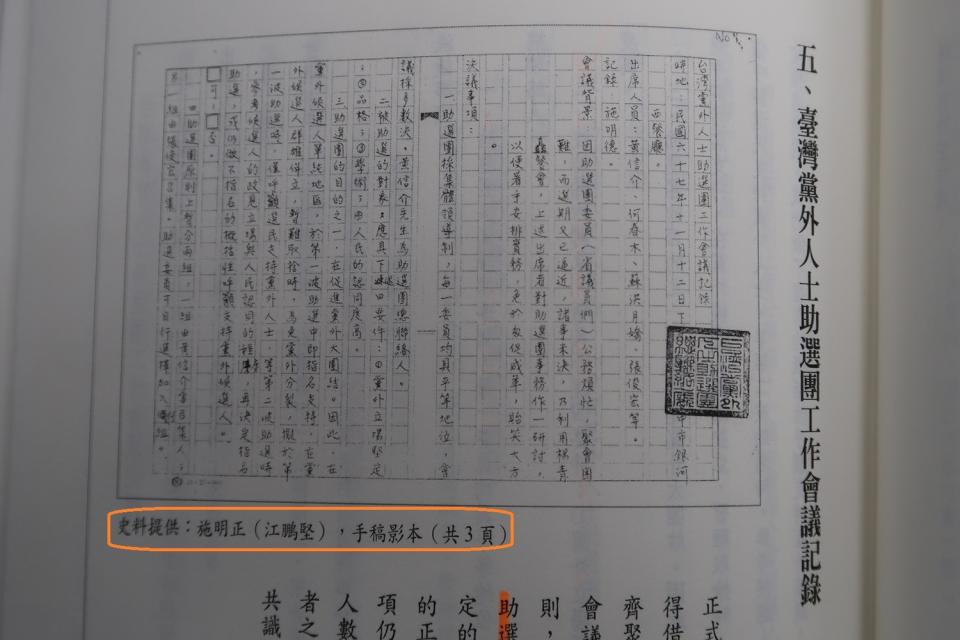 五、臺灣黨外人士助選團工作會議記錄
No 1.
台灣黨外人士助選團工作會議記錄
時地：民國六十七年十一月十二日下 中市銀河
西餐廳。
出席人員：黃信介、何春木、蘇洪月嬌、張俊宏等。
記錄：施明德。
會議背景：因助選團委員（省議員們）公務煩忙，聚會困
難，而選期又已逼近，諸事未決，乃利用楊青
矗餐會，上述出席者對助選團事務作一研討，
以便著手安排實務，免於倉促成軍，貽笑大方
。
決議事項：
一助選團採集體領導制，每一委員均具平等地位，會
議採多數決。黃信介先生為助選團總聯絡人。
二被助選的對象，應具下述四要件：①黨外立場堅定
；②品格；③學術；④人民的認同度高。
三助選團的目的之一，在促進黨外大團結。因此，在
黨外候選人單純地區，於第一波助選中即指名支持，在黨
外候選人群雄併立，暫難取捨時，為免黨外分裂，擬於第
一波助選時，僅呼籲選民支持黨外人士，等第二波助選時
，參考候選人的政見立場與人民認同的程度，再決定指名
助選，或仍做不指名的概括性呼籲支持黨外候選人。
可，否。
四助選團原則上暫分兩組，一組由黃信介當召集人；
另一組由張俊宏召集。助選委員可自行選擇加入
組。
史料提供：施明正（江鵬堅），手稿影本（共3頁）
正式
得借
齊聚
會議
則，
助選
定的
的正
項仍
人數
者之
共識